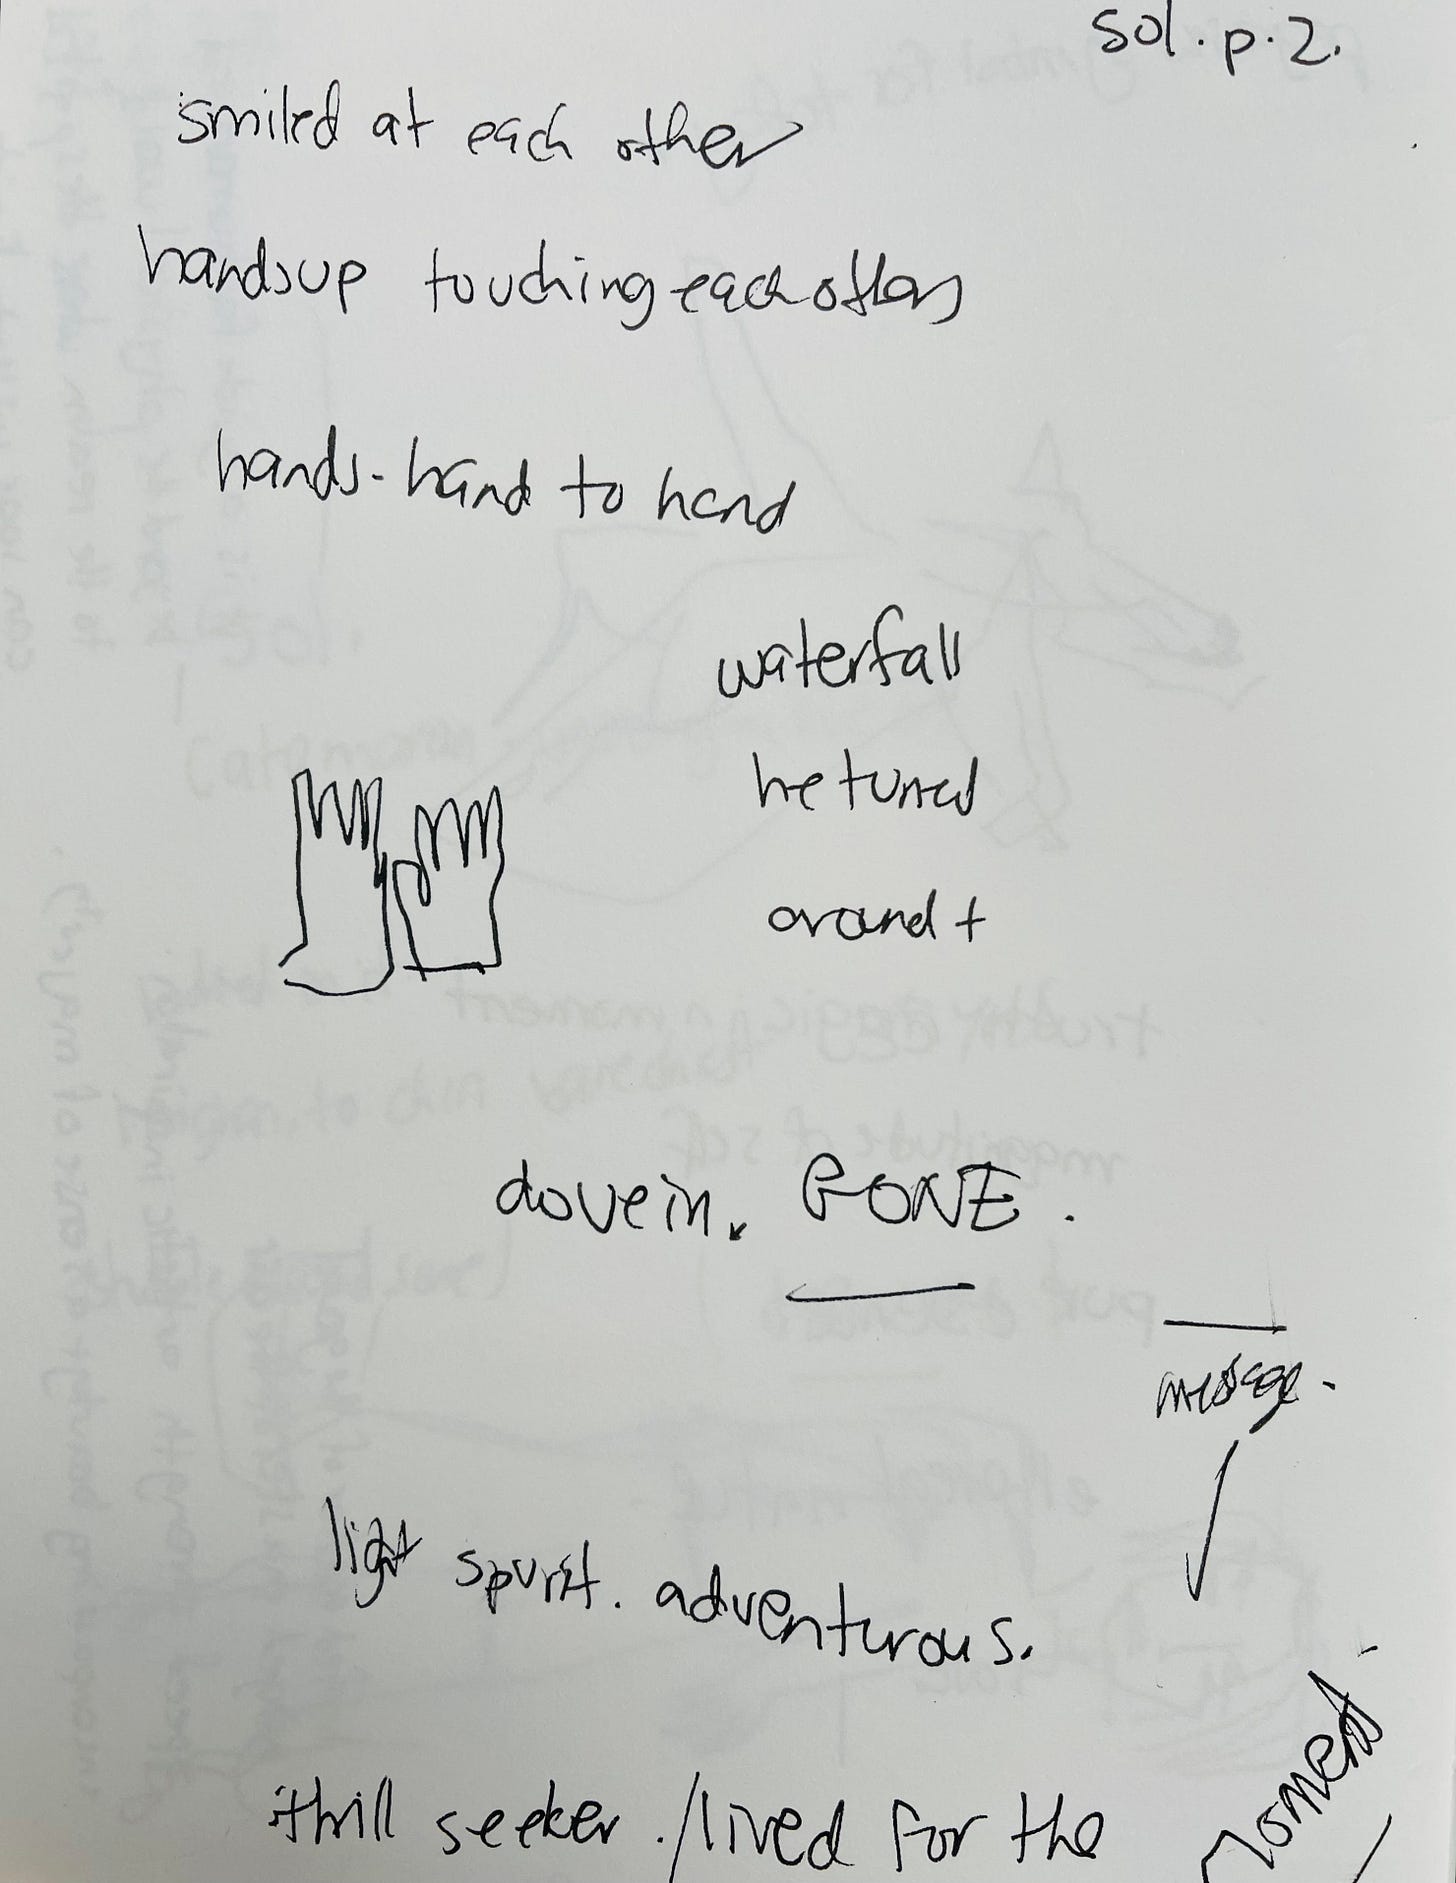 sol. p. 2.
smiled at each other
handsup touching each others
hands - hand to hand
waterfall
he turned
around +
dove in. GONE.
message.
light spirit. adventurous.
thrill seeker. / lived for the
moment.